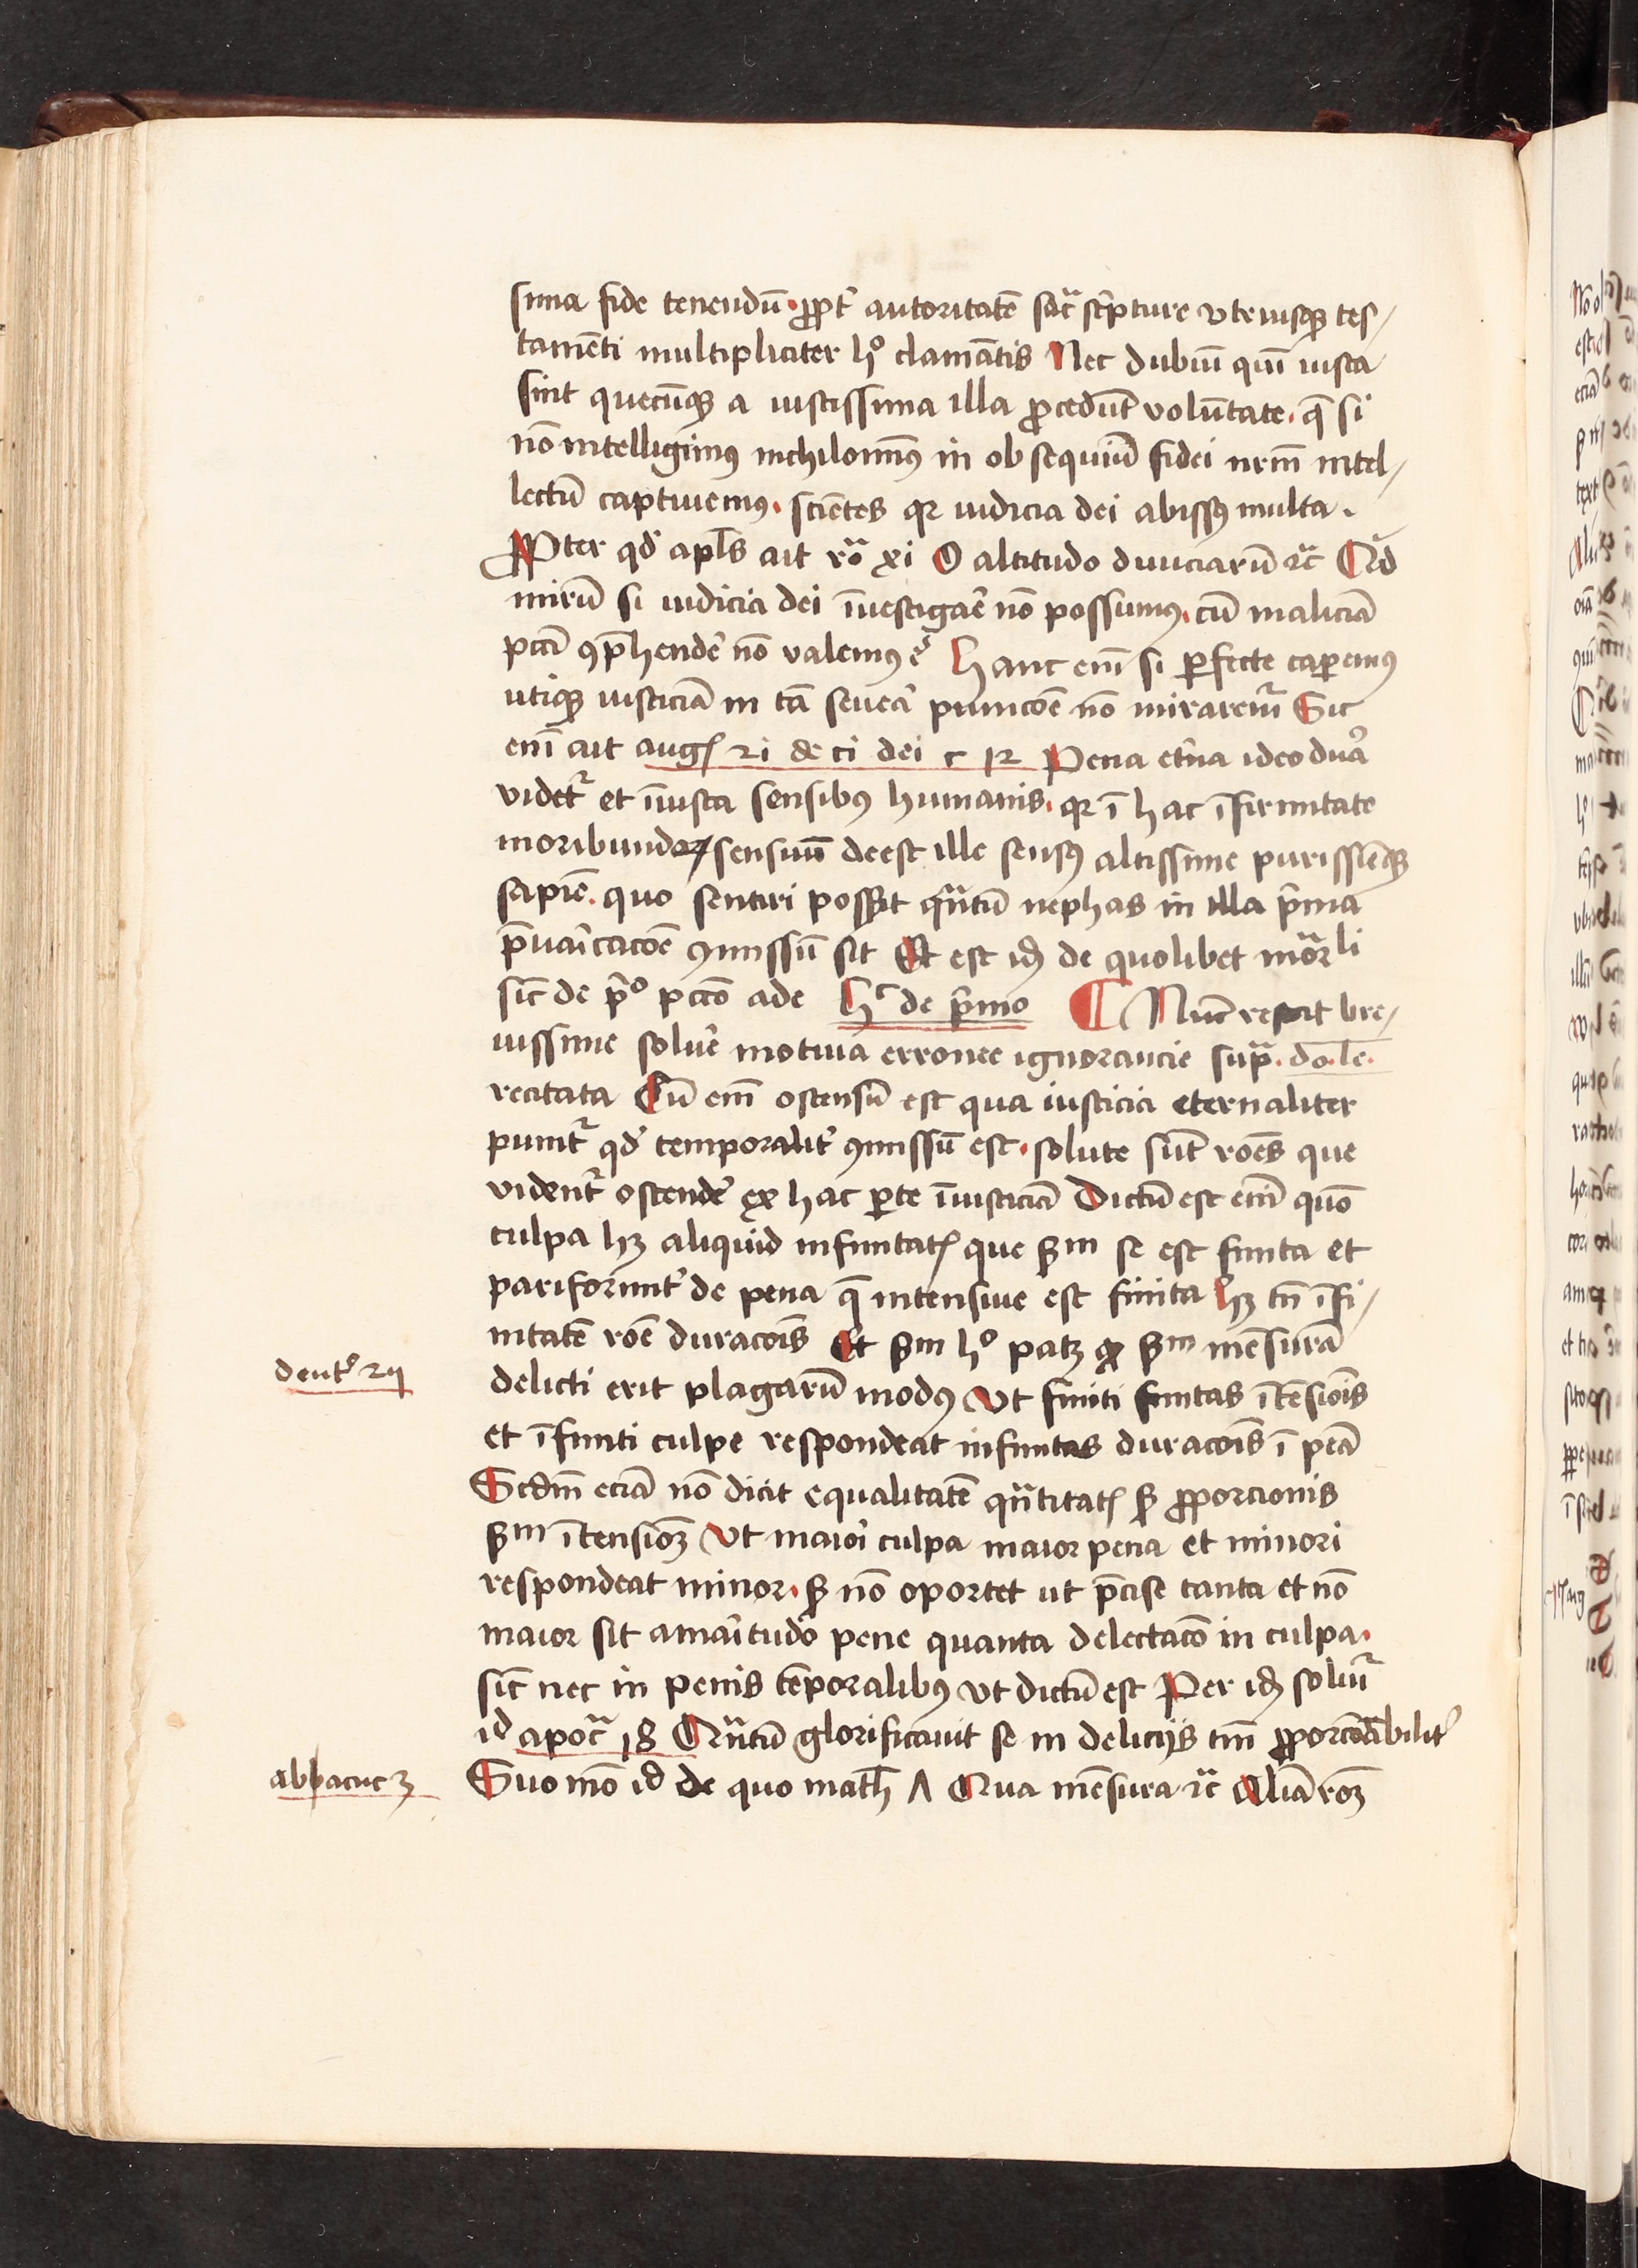 sima fide tenendū · ꝓpt̕ autoritatē sac̄ sc̄pture vtriusqꝫ tes/
tamēti multipliciter hͦ clamātis Nec dubiū quī iusta
sint quecūqꝫ a iustissima illa ꝓcedūt volūtate · q̄ si
nō intelligimꝯ nichilominꝯ in obsequiū fidei nr̄m intel/
lectū captiuemꝯ · sciētes qꝛ iudicia dei abissꝯ multa .
Ꝓpter qd̕ apl̄s ait ro xi O altitudo diuiciarū ⁊c̄ Qͥd
mirū si iudicia dei īuestigar̄e nō possumꝯ · cū maliciā
pcc̄i ꝯp̄hender̄e nō valemꝯ Hanc em̄ si ꝑfecte caperemꝯ
utiqꝫ iusticiā in tā seuera punicōe nō mirarem̄ Sic
em̄ ait augꝭ 21 de ci dei c 12 Pena et̄na ideo dura
videt̕ et īiusta sensibꝯ humanis · qꝛ ī hac īfirmitate
moribundoꝝ sensuū deest ille sensꝯ altissime purissīeqꝫ
sapiē · quo sentiri possit qn̄tū nephas in illa p̄ma
p̄uaricacōe ꝯmissū sit Et est idꝫ de quolibet morli
sic̄ de pͥͦ pcc̄o ade Hͨ de pͥmo ¶ Nūc restat bre/
uissime soluer̄e motiua erronee ignorancie supͣ · do · le ·
recitata Cū em̄ ostensū est qua iusticia eternaliter
punit̕ qd̕ temporalit̕ ꝯmissū est · solute sūt rōes que
vident̕ ostender̄e ex hac ꝑte īiusticiā Dictū est em̄ quō
culpa hꝫ aliquid infinitatꝭ que ẜm se est finita et
pariformit̕ de pena q̄ intensiue est finita hꝫ tn̄ īfi/
nitatē rōe duracōis Et ẜm hͦ patꝫ qͦ ẜm mēsurā
delicti erit plagarū modꝯ Ut finiti finitas ītēsiōis
et īfiniti culpe respondeat infinitas duracōis ī penā
Scd̄m eciā nō dicit equalitatē qn̄titatꝭ sꝫ ꝓporcionis
ẜm ītensiōꝫ Ut maiori culpa maior pena et minori
respondeat minor · sꝫ nō oportet ut p̄cise tanta et nō
maior sit amaritudo pene quanta delectacō in culpa ·
sic̄ nec in penis tēporalibꝯ vt dictū est Per idꝫ soluit̕
id apoc̄ 18 Qn̄tū glorificauit se in deliciis tm̄ ꝓporcōabilit̕
Suo mō id de quo math Λ Qua mēsura ⁊c̄ Aliā roꝫ
deut̕ 25
abbacuc 3